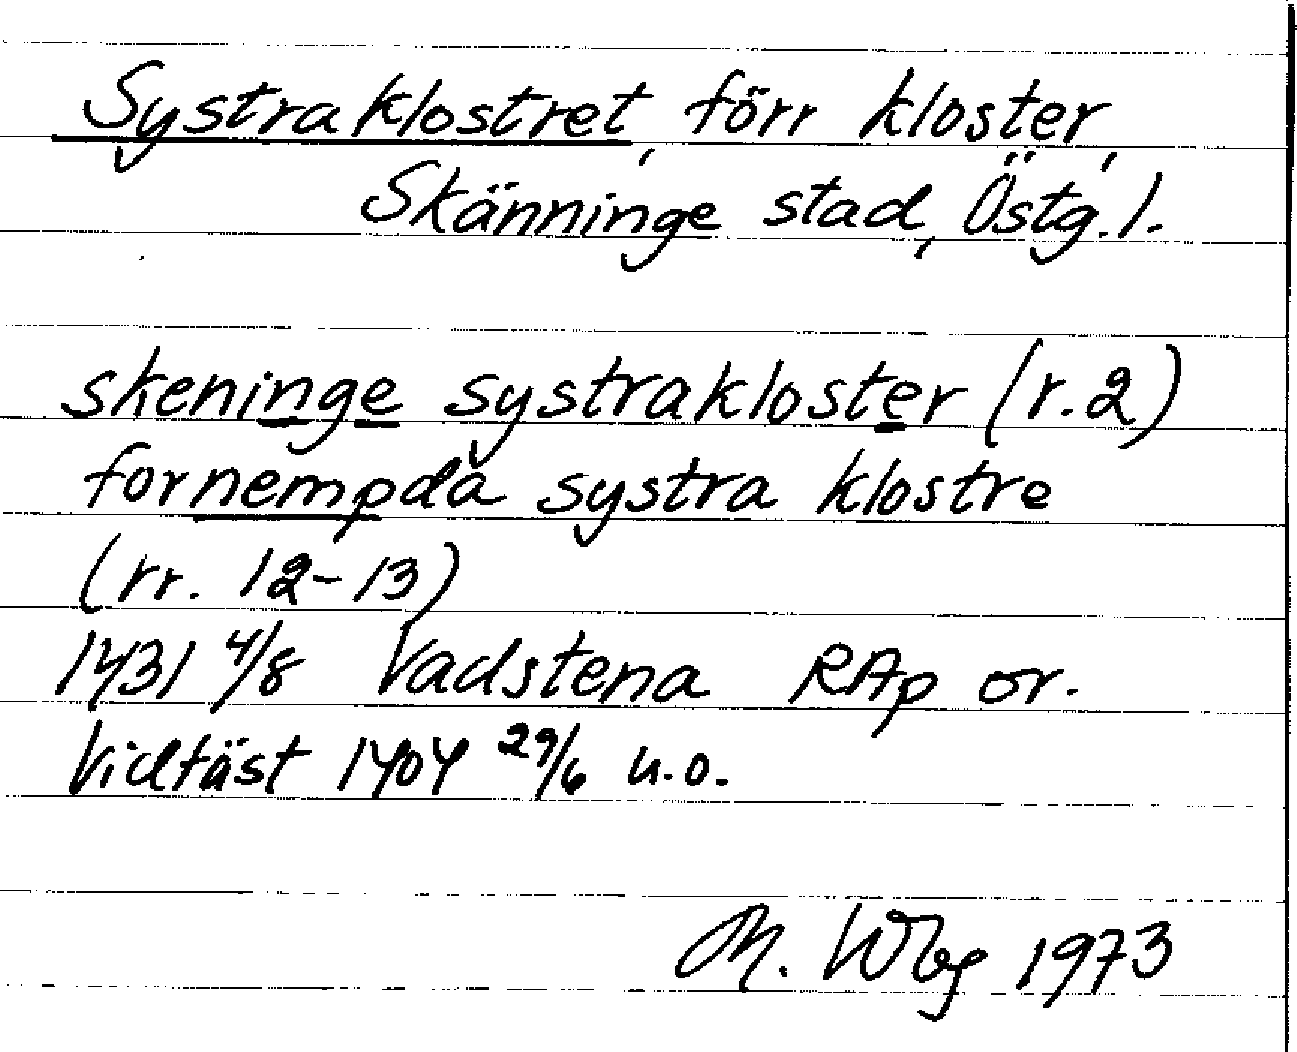 Systraklostret, förr kloster,
Skänninge stad, Östg.l.
skeninge systrakloster (r.2)
fornempda systra klostre
(rr. 12-13)
1431 4/8 Vadstena RAp or.
Vidfäst 1404 29/6 u.o.
M. Wbg 1973